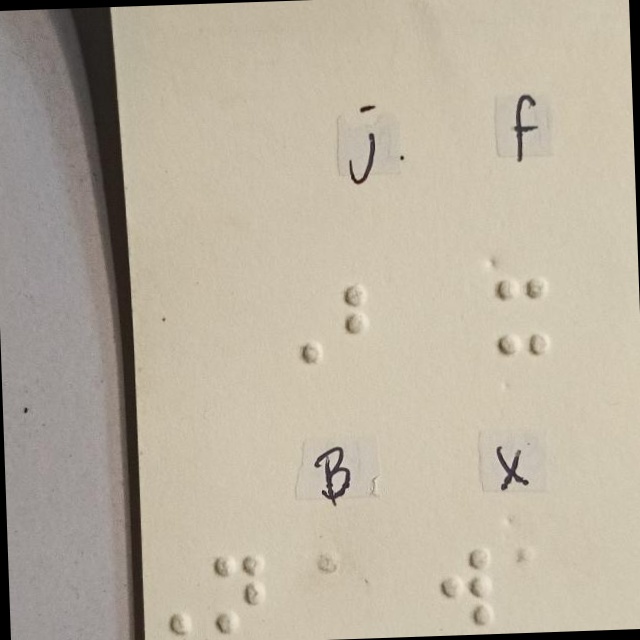 j. f
⠠⠃ ⠭
B x
⠠⠝ ⠺